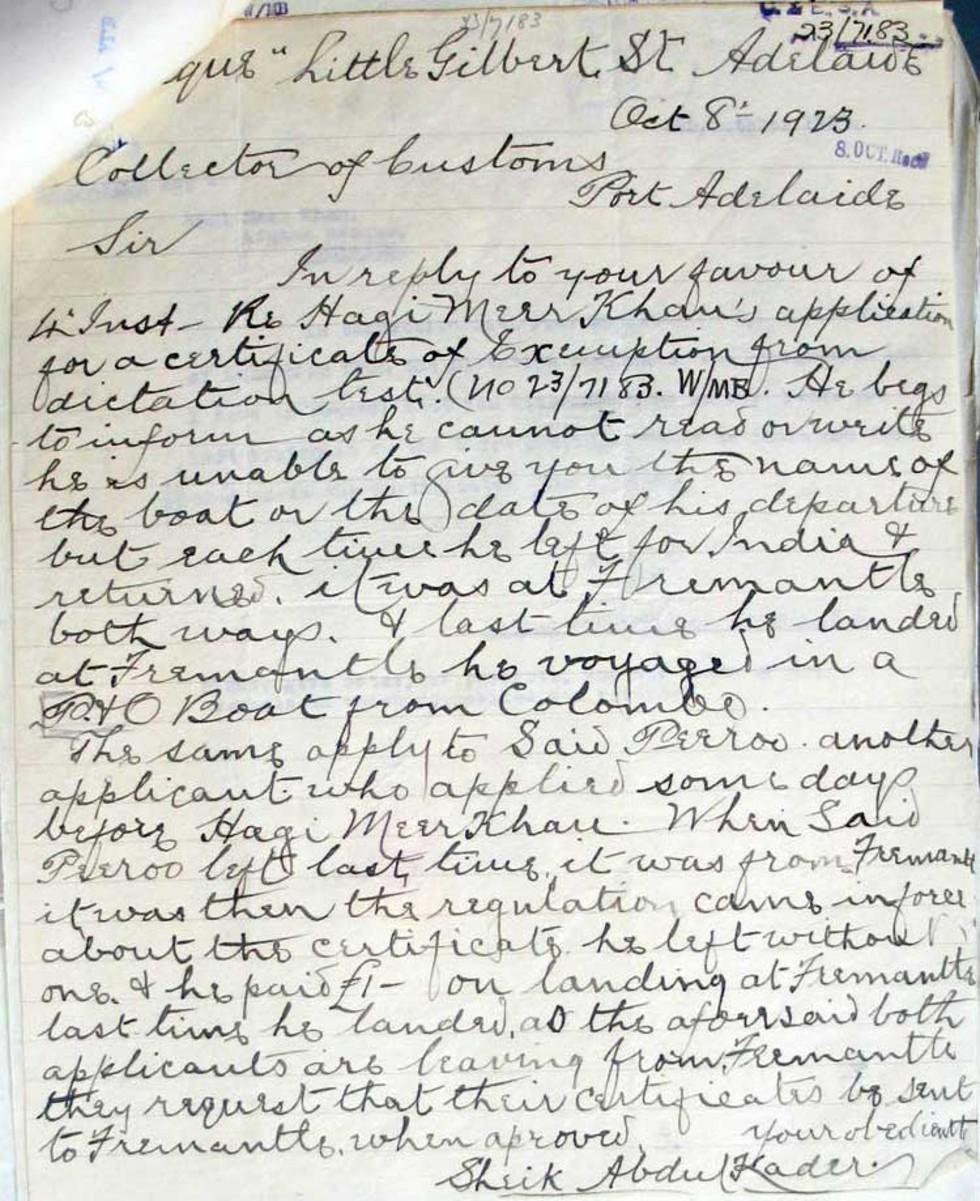 23/7183
C & E. S.A
23/7183
que" Little Gilbert. St. Adelaide
Oct 8th 1923.
8. OCT. Recd
Collector of Customs
Port Adelaide
Sir
In reply to your favour of
4th Inst - Re Hagi Meer Khan's application
for a certificate of Exemption from
dictation test. (No 23/7183. W/MB). He begs
to inform as he cannot read or write
he is unable to give you the name of
the boat or the date of his departure
but each time he left for India &
returned. it was at Fremantle
both ways. & last time he landed
at Fremantle he voyaged in a
P.&O Boat from Colombo.
The same apply to Said Peeroo. another
applicant who applied some days
before Hagi Meer Khan. When Said
Peeroo left last time, it was from Fremantle
it was then the regulation came in force
about the certificate he left without
one. & he paid £1- on landing at Fremantle
last time he landed, as the aforesaid both
applicants are leaving from Fremantle
they request that their certificates be sent
to Fremantle. when aproved. your obedient
Sheik Abdul Kader.